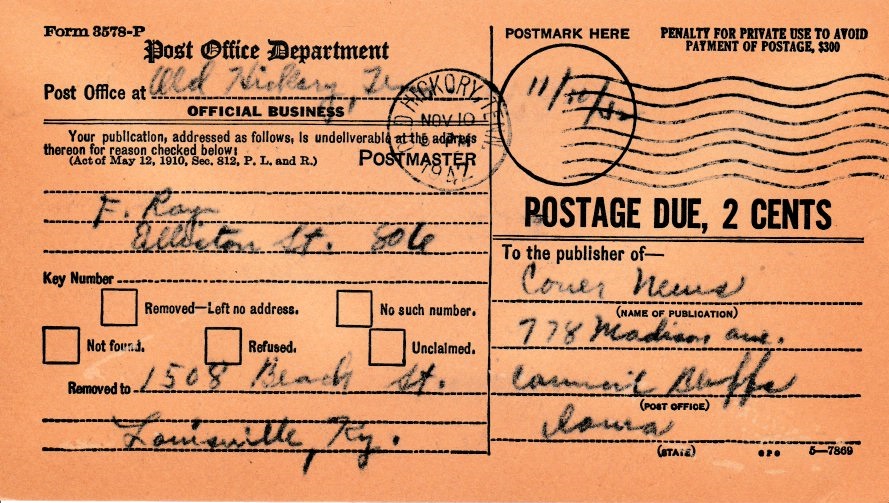 Form 3578-P
Post Office Department
Post Office at Old Hickory, Tenn
OFFICIAL BUSINESS
Your publication, addressed as follows, is undeliverable at the address
thereon for reason checked below:
(Act of May 12, 1910, Sec. 812, P. L. and R.)
POSTMASTER
F. Ray
St. 806
Key Number
Removed—Left no address.
No such number.
Not found.
Refused.
Unclaimed.
Removed to 1508 Beach St.
Louisville, Ky.
OLD HICKORY, TENN.
NOV 10
PM
1947
POSTMARK HERE
PENALTY FOR PRIVATE USE TO AVOID
PAYMENT OF POSTAGE, $300
11/10/
POSTAGE DUE, 2 CENTS
To the publisher of—
News
(NAME OF PUBLICATION)
778 Madison ave.
Council Bluffs
(POST OFFICE)
Iowa
(STATE)
GPO 5—7869